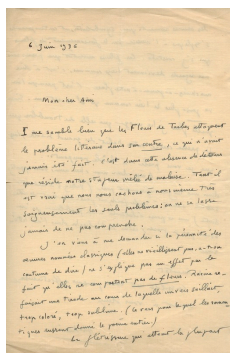 6 Juin 1936
Mon cher Ami
Il me semble bien que les Fleurs de Tarbes attaquent
le problème littéraire dans son centre, ce que n'avait
jamais été fait. c'est dans cette absence de détour
que réside notre stupeur mêlée de malaise. Tant il
est vrai que nous nous cachons à nous-même très
soigneusement les seuls problèmes: on ne se lasse
jamais de ne pas comprendre.
J'en viens à me demander si la pérennité des
œuvres nommées classiques (elles ne vieillissent pas, a-t-on
coutume de dire) ne s'explique pas en effet par le
fait qu'elles ne comportent pas de fleurs. Racine,
faisant une tirade au cours de laquelle un vers saillait,
trop coloré, trop sublime. (le vers pour lequel les roman-
tiques eussent donné le poème entier)
Le flétrissure qui atteint la plupart